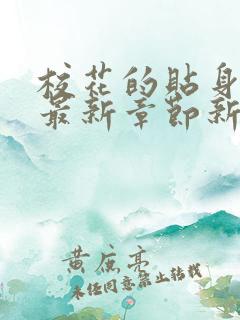 校花的贴身
最新章节新
黄庶亮
未经同意禁止转载